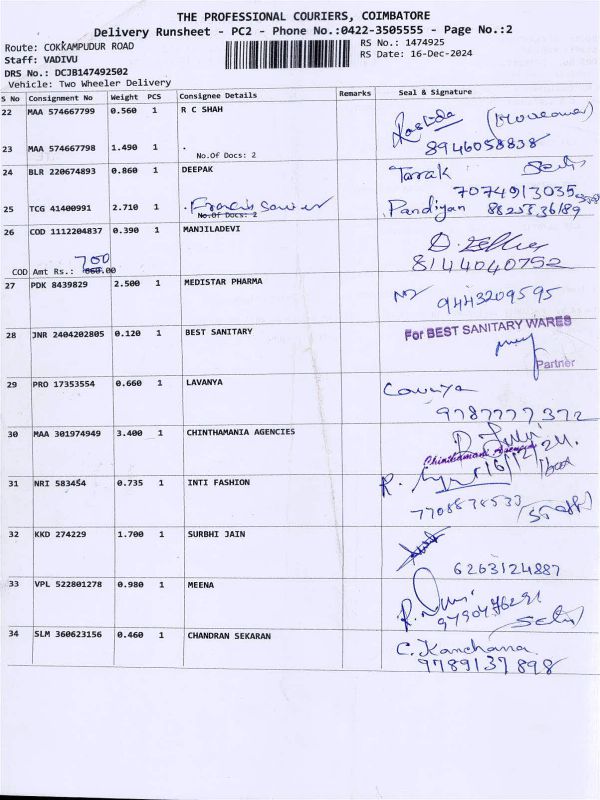 THE PROFESSIONAL COURIERS, COIMBATORE
Delivery Runsheet - PC2 - Phone No.:0422-3505555 - Page No.:2
Route: COKKAMPUDUR ROAD
RS No.: 1474925
Staff: VADIVU
RS Date: 16-Dec-2024
DRS No.: DCJB147492502
Vehicle: Two Wheeler Delivery
S No Consignment No Weight PCS Consignee Details Remarks Seal & Signature
22 MAA 574667799 0.560 1 R C SHAH
23 MAA 574667798 1.490 1 . 8946058838
No.Of Docs: 2
24 BLR 220674893 0.860 1 DEEPAK Tarak
7074913035
25 TCG 41400991 2.710 1 . Francis Pandiyan
No.Of Docs: 2
26 COD 1112204837 0.390 1 MANJILADEVI
8144040752
700
COD Amt Rs.: .00
27 PDK 8439829 2.500 1 MEDISTAR PHARMA 9443209595
28 JNR 2404202805 0.120 1 BEST SANITARY For BEST SANITARY WARES
Partner
29 PRO 17353554 0.660 1 LAVANYA
9787777372
30 MAA 301974949 3.400 1 CHINTHAMANIA AGENCIES
16/12/24.
31 NRI 583454 0.735 1 INTI FASHION
7708878533 (Staff)
32 KKD 274229 1.700 1 SURBHI JAIN
6263124887
33 VPL 522801278 0.980 1 MEENA
34 SLM 360623156 0.460 1 CHANDRAN SEKARAN C. Kanchana
9789137898